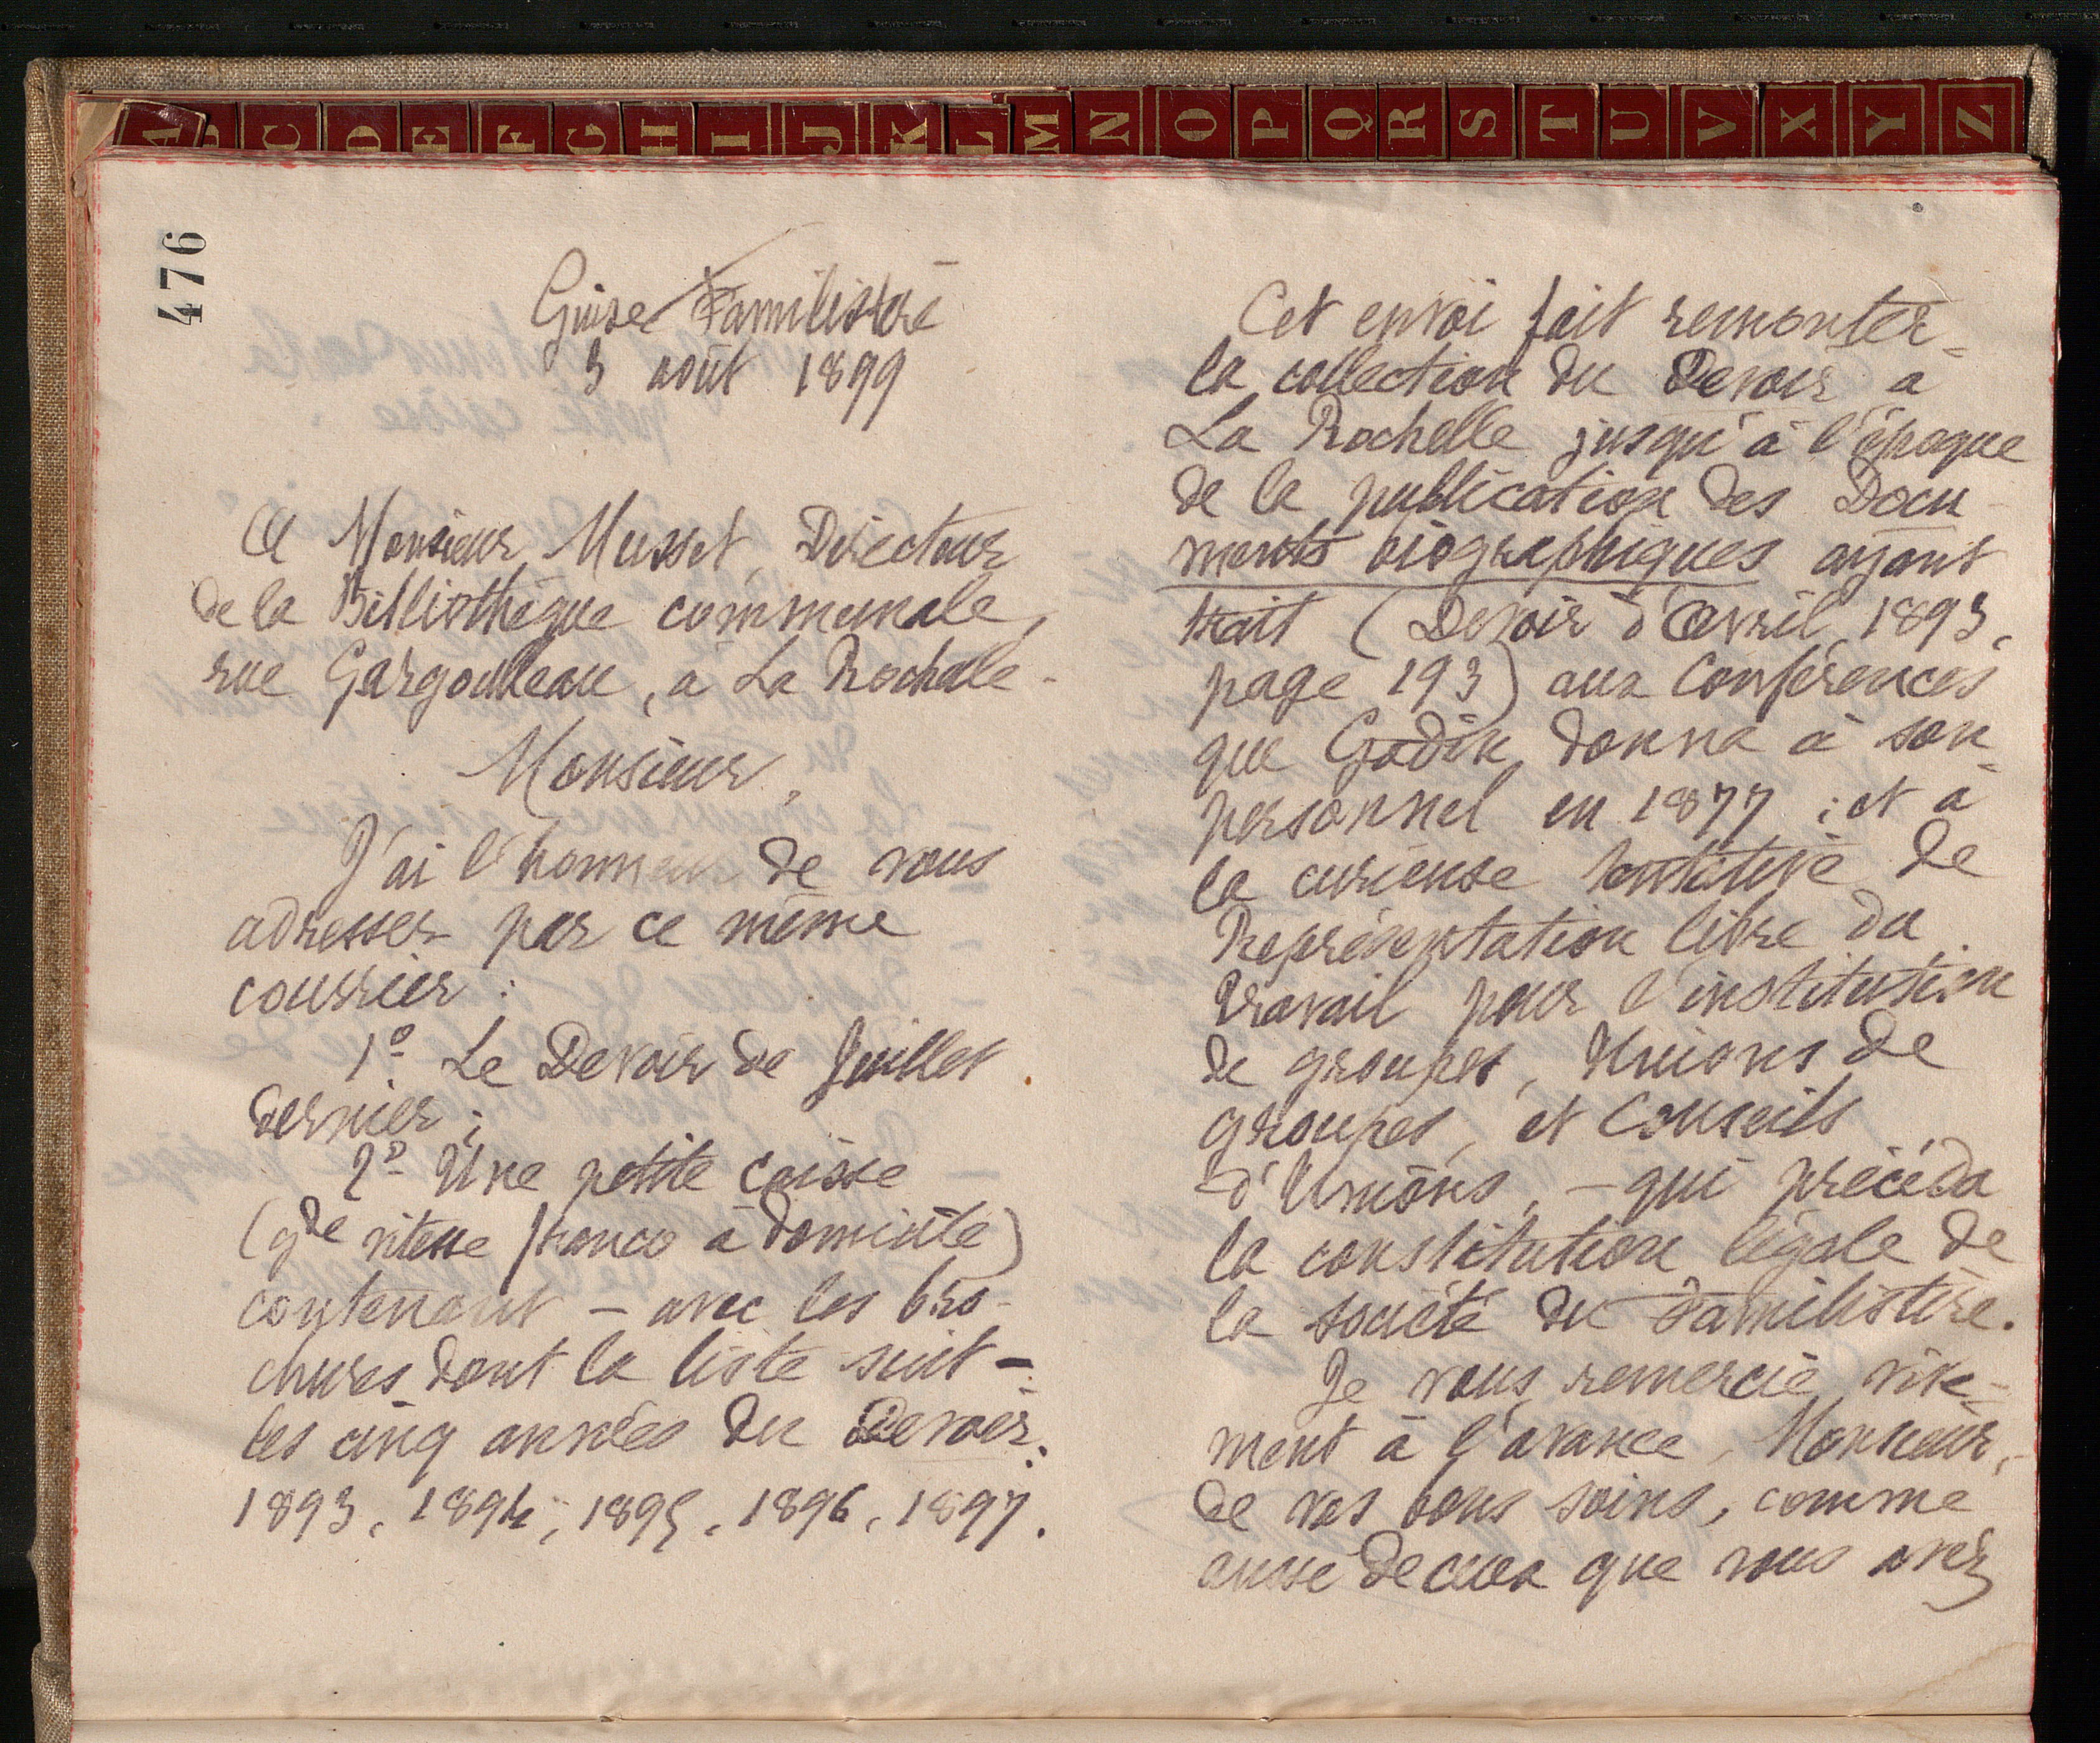 A B C D E F G H I J K L M N O P Q R S T U V X Y Z
476
Guise Familistère
3 août 1899
A Monsieur Musset, Directeur
de la Bibliothèque communale,
rue Gargoulleau, à La Rochelle
Monsieur,
J'ai l'honneur de vous
adresser par ce même
courrier :
1º Le Devoir de Juillet
dernier ;
2º Une petite caisse
(gde vitesse franco à domicile)
contenant – avec les bro-
chures dont la liste suit –
les cinq années du Devoir :
1893, 1894, 1895, 1896, 1897.
Cet envoi fait remonter
la collection du Devoir à
La Rochelle jusqu'à l'époque
de la publication des Docu-
ments biographiques ayant
trait (Devoir d'avril 1893,
page 193) aux Conférences
que Godin donna à son
personnel en 1877 ; et à
la curieuse tentative de
Représentation libre du
travail pour l'institution
de groupes, Unions de
groupes, et Conseils
d'Unions, – qui précéda
la constitution légale de
la société du Familistère.
Je vous remercie vive-
ment à l'avance, Monsieur,
de vos bons soins, comme
aussi de ceux que vous avez